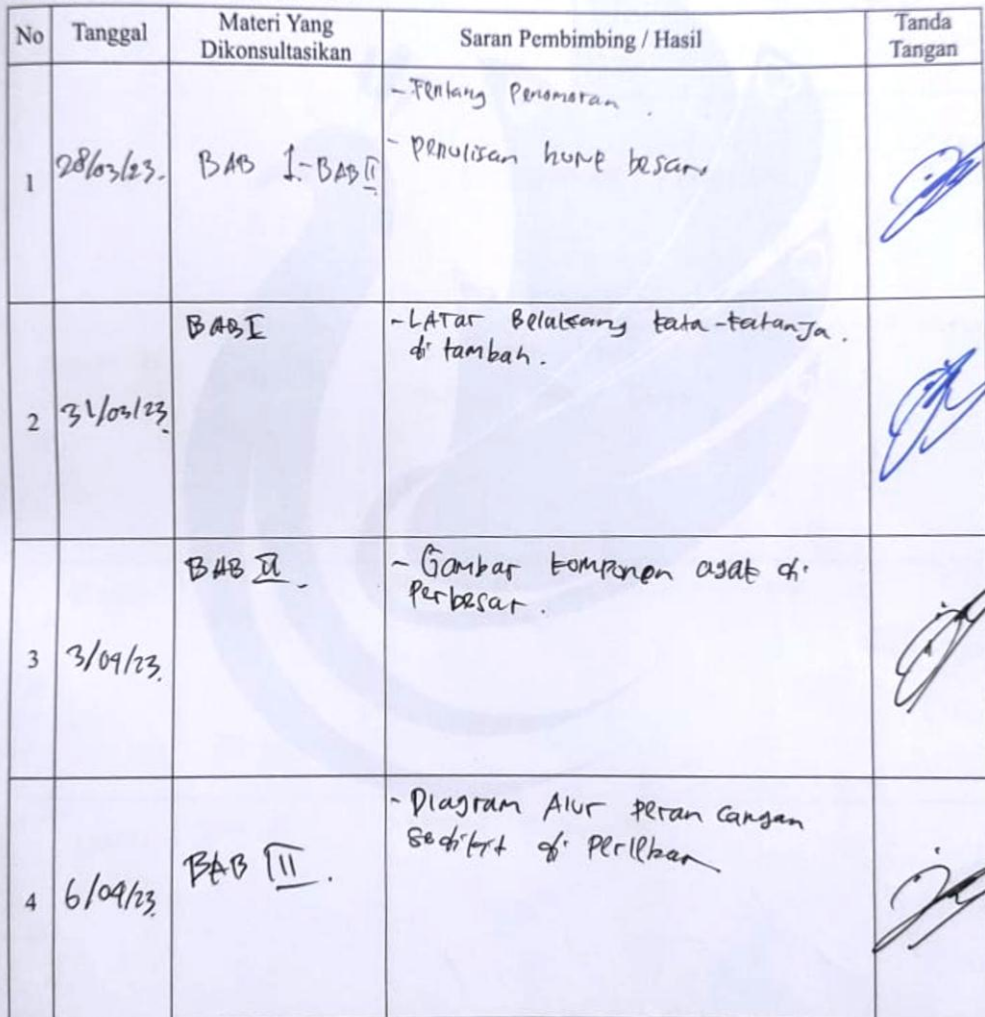 No
Tanggal
Materi Yang
Dikonsultasikan
Saran Pembimbing / Hasil
Tanda
Tangan
1
28/03/23.
BAB I-BAB II
- Tentang Penomoran.
- Penulisan huruf besar.
2
31/03/23.
BAB I
- LATar Belakang kata-katanya.
di tambah.
3
3/04/23.
BAB II.
- Gambar komponen agak di
Perbesar.
4
6/04/23.
BAB III.
- Diagram Alur peran cangan
sedikit di Perlebar